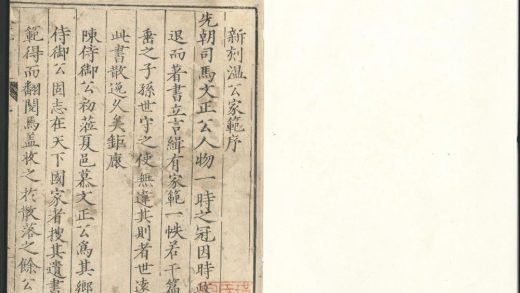 新刻温公家範序
先朝司馬文正公人物一時之冠因時政
退而著書立言緝有家範一帙若干篇
垂之子孫世守之使無違其則者世遠
此書散逸久矣鉅鹿
陳侍御公初蒞夏邑慕文正公為其鄉
侍御公固志在天下國家者搜其遺書
範得而翻閱焉盖收之於散落之餘公